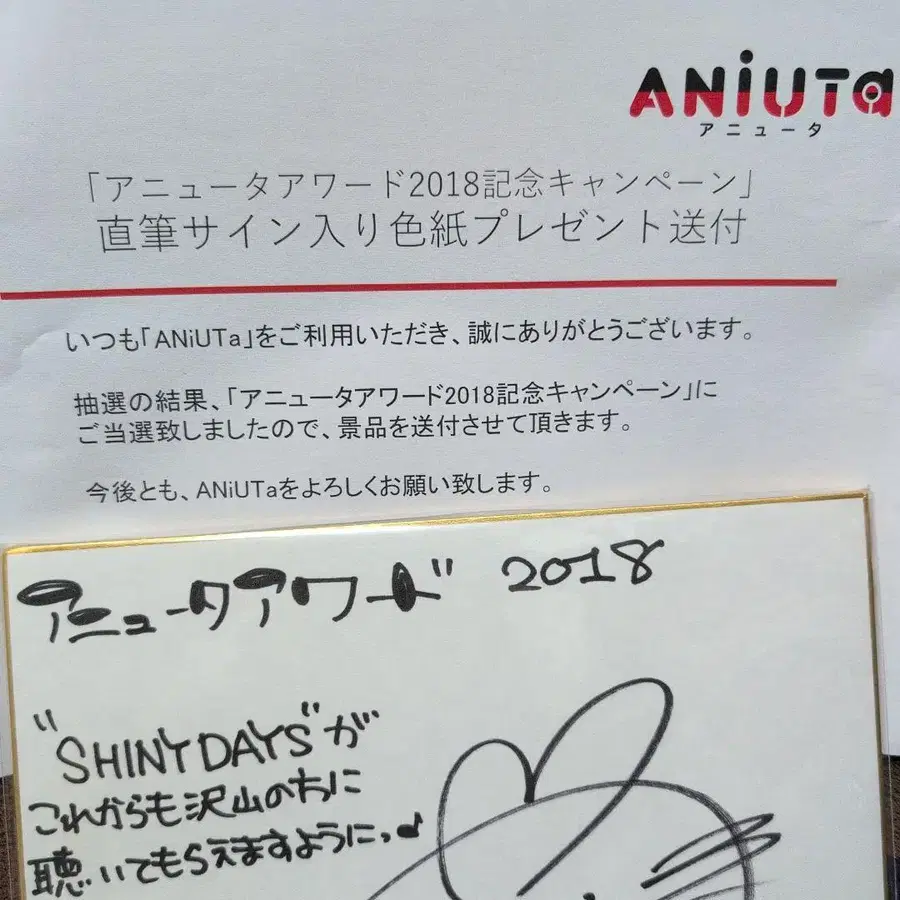 ANiUTa
アニュータ
「アニュータアワード2018記念キャンペーン」
直筆サイン入り色紙プレゼント送付
いつも「ANiUTa」をご利用いただき、誠にありがとうございます。
抽選の結果、「アニュータアワード2018記念キャンペーン」に
ご当選致しましたので、景品を送付させて頂きます。
今後とも、ANiUTaをよろしくお願い致します。
アニュータアワード 2018
"SHINY DAYS"が
これからも沢山の方に
聴いてもらえますようにっ♪